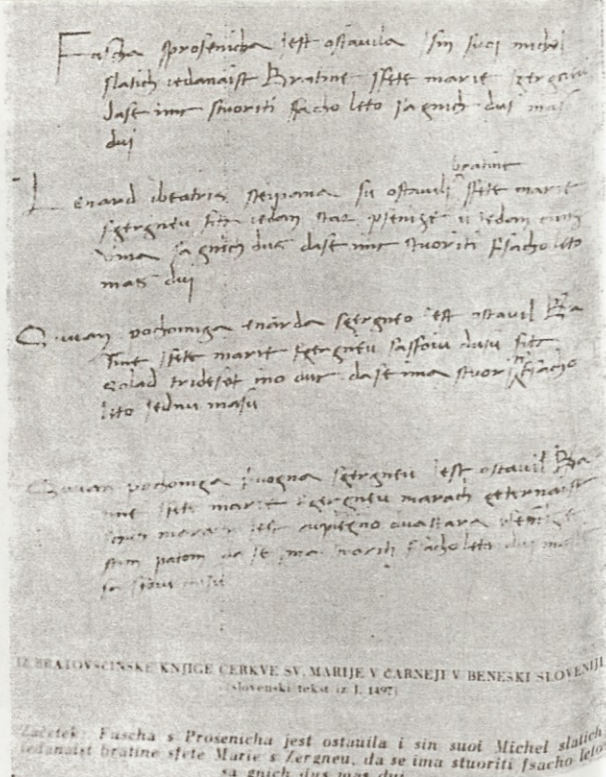 Fascha sprosenicha iest ostauila isin suoi michel
slatich iedanaist Bratine ssete marie szergneu
dase imc stuoriti fsacho leto sa gnich dus mas
dui
bratine
Lenard ibeatris stepana su ostauili ssete marie
szergneu fitz iedan star psenize u iedan
vina sa gnich dus dase imc stuoriti fsacho leto
mas dui
Giuan pochoiniga enarda szergneo iest ostauil Bra
tine ssete marie szergneu sasfoiu dusu
trideset ino due dase ima stuoriti fsacho
lito iednu masu
Giuan pochoiniga szergneu iest ostauil Bra
tine ssete marie szergneu marach
marach duastara psenize
patom da se ima fsacho leto dui
sa
IZ BRATOVŠČINSKE KNJIGE CERKVE SV. MARIJE V ČARNEJI V BENEŠKI SLOVENIJI
(slovenski tekst iz l. 1497)
Začetek: Fascha s Prosenicha jest ostauila i sin suoi Michel slatich
iedanaist bratine sfete Marie s Zergneu, da se ima stuoriti fsacho leto
sa gnich dus mas dui